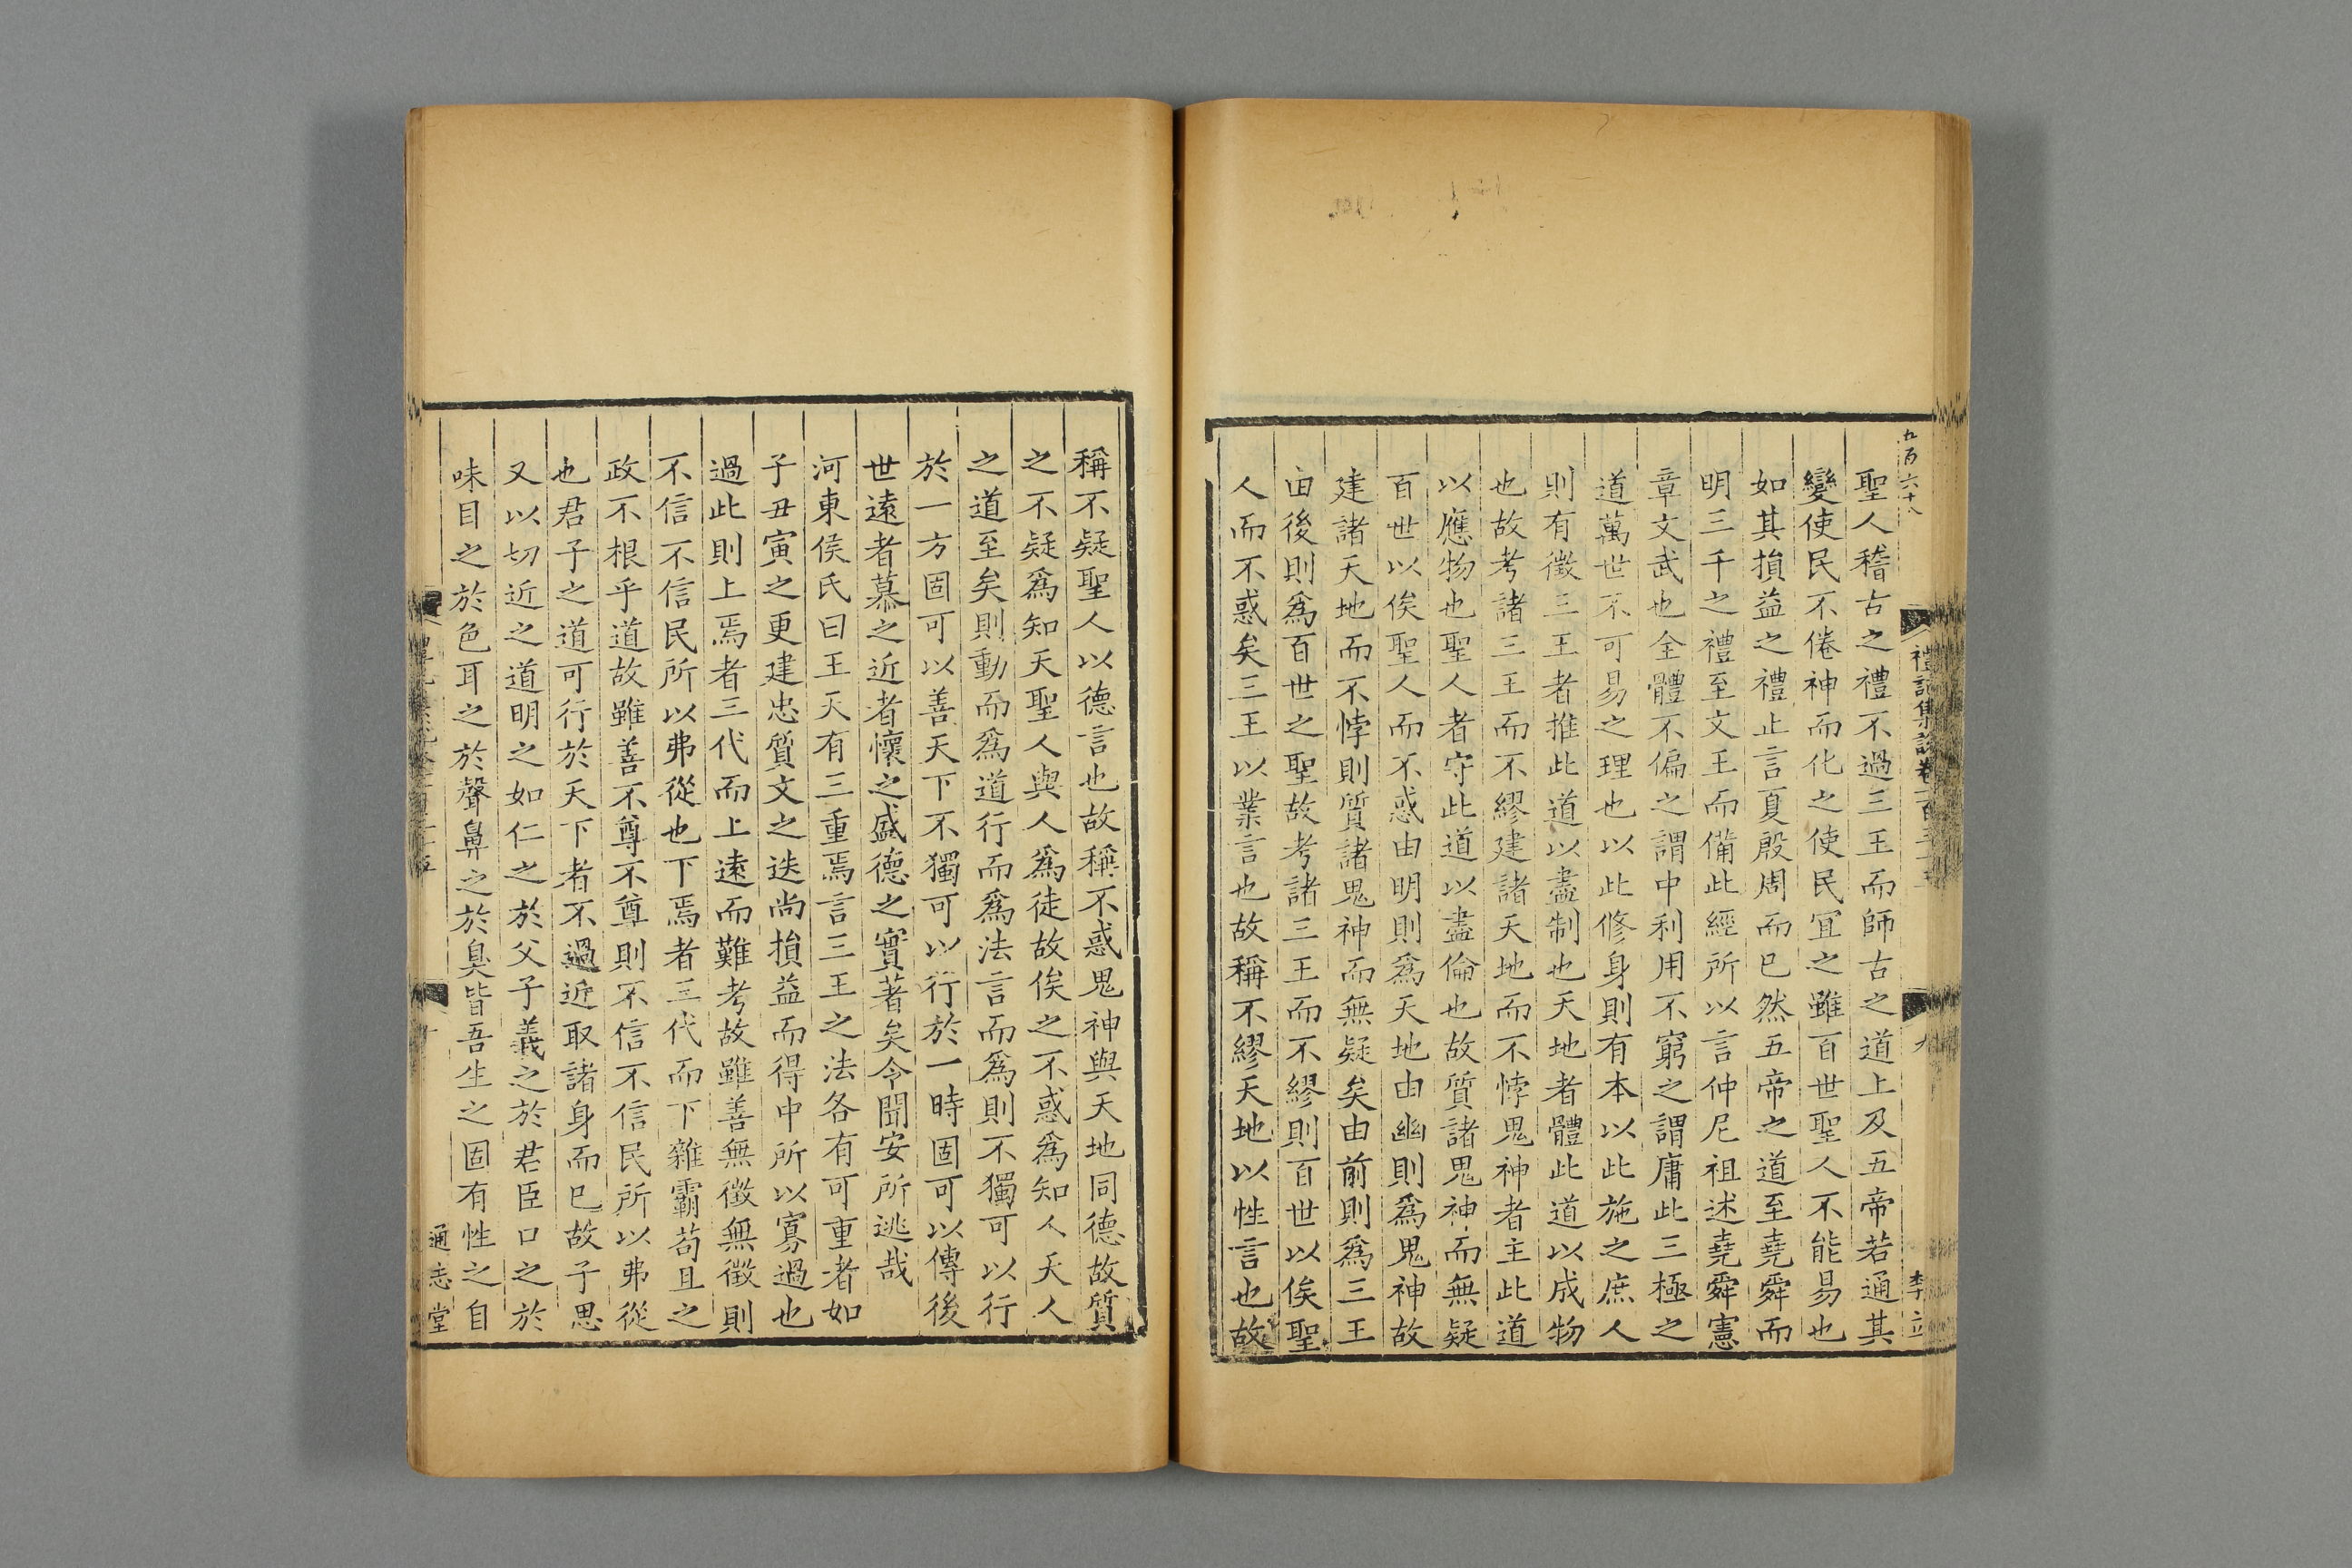 五百六十八
禮記集說卷一百三十
九
李立
聖人稽古之禮不過三王而師古之道上及五帝若通其
變使民不倦神而化之使民宜之雖百世聖人不能易也
如其損益之禮止言夏殷周而已然五帝之道至堯舜而
明三千之禮至文王而備此經所以言仲尼祖述堯舜憲
章文武也全體不偏之謂中利用不窮之謂庸此三極之
道萬世不可易之理也以此修身則有本以此施之庶人
則有徵三王者推此道以盡制也天地者體此道以成物
也故考諸三王而不繆建諸天地而不悖鬼神者主此道
以應物也聖人者守此道以盡倫也故質諸鬼神而無疑
百世以俟聖人而不惑由明則爲天地由幽則爲鬼神故
建諸天地而不悖則質諸鬼神而無疑矣由前則爲三王
由後則爲百世之聖故考諸三王而不繆則百世以俟聖
人而不惑矣三王以業言也故稱不繆天地以性言也故
稱不疑聖人以德言也故稱不惑鬼神與天地同德故質
之不疑爲知天聖人與人爲徒故俟之不惑爲知人天人
之道至矣則動而爲道行而爲法言而爲則不獨可以行
於一方固可以善天下不獨可以行於一時固可以傳後
世遠者慕之近者懷之盛德之實著矣令聞安所逃哉
河東侯氏曰王天有三重焉言三王之法各有可重者如
子丑寅之更建忠質文之迭尚損益而得中所以寡過也
過此則上焉者三代而上遠而難考故雖善無徵無徵則
不信不信民所以弗從也下焉者三代而下雜霸苟且之
政不根乎道故雖善不尊不尊則不信不信民所以弗從
也君子之道可行於天下者不過近取諸身而已故子思
又以切近之道明之如仁之於父子義之於君臣口之於
味目之於色耳之於聲鼻之於臭皆吾生之固有性之自
十
通志堂